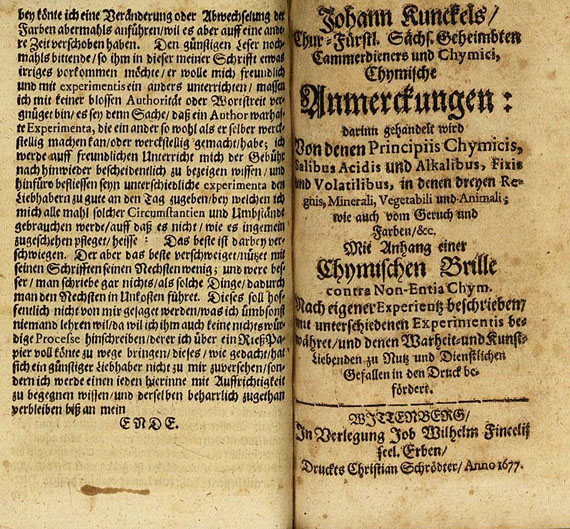 bey könte ich eine Veränderung oder Abwechselung der
Farben abermahls anführen/ wil es aber auff eine ande
re Zeit verschoben haben. Den günstigen Leser noch-
mahls bittende/ so ihm in dieser meiner Schrifft etwas
irriges vorkommen möchte/ er wolle mich freundlich
und mit experimentis ein anders unterrichten/ massen
ich mit keiner blossen Authorität oder Wortstreit ver-
gnüget bin/ es sey denn Sache/ daß ein Author warhaf-
te Experimenta, die ein ander so wohl als er selber werck-
stellig machen kan/ oder werckstellig gemacht/ habe; ich
werde auff freundlichen Unterricht mich der Gebühr
nach hinwieder bescheidentlich zu bezeigen wissen/ und
hinfüro befliessen seyn unterschiedliche experimenta den
Liebhabern zu gute an den Tag zugeben/ bey welchen ich
mich alle mahl solcher Circumstantien und Umbstände
gebrauchen werde/ auff daß es nicht/ wie es ingemein
zugeschehen pfleget/ heisse: Das beste ist darbey ver-
schwiegen. Der aber das beste verschweiget/ nützet mit
seinen Schrifften seinen Nechsten wenig; und were bes-
ser/ man schriebe gar nichts/ als solche Dinge/ dadurch
man den Nechsten in Unkosten führet. Dieses soll hof-
fentlich nicht von mir gesaget werden/ was ich ümbsonst
niemand lehren wil/ da wil ich ihm auch keine nichtswür
dige Processe hinschreiben/ derer ich über ein Rieß Pa-
pier voll könte zu wege bringen/ dieses/ wie gedacht/ hat
sich ein günstiger Liebhaber nicht zu mir zuversehen/ son-
dern ich werde einen ieden hierinne mit Auffrichtigkeit
zu begegnen wissen/ und derselben beharrlich zugethan
verbleiben biß an mein
ENDE.
Johann Kunckels/
Chur-Fürstl. Sächs. Geheimbten
Cammerdieners und Chymici,
Chymische
Anmerckungen:
darinn gehandelt wird
Von denen Principiis Chymicis,
Salibus Acidis und Alkalibus, Fixis
und Volatilibus, in denen dreyen Re-
gnis, Minerali, Vegetabili und Animali;
wie auch vom Geruch und
Farben/ &c.
Mit Anhang einer
Chymischen Brille
contra Non-Entia Chym.
Nach eigener Experientz beschrieben/
mit unterschiedenen Experimentis be-
währet/ und denen Warheit-und Kunst-
Liebenden zu Nutz und Dienstlichen
Gefallen in den Druck be-
fördert.
WITTENBERG/
In Verlegung Job Wilhelm Fincelii
seel. Erben/
Druckts Christian Schrödter/ Anno 1677.